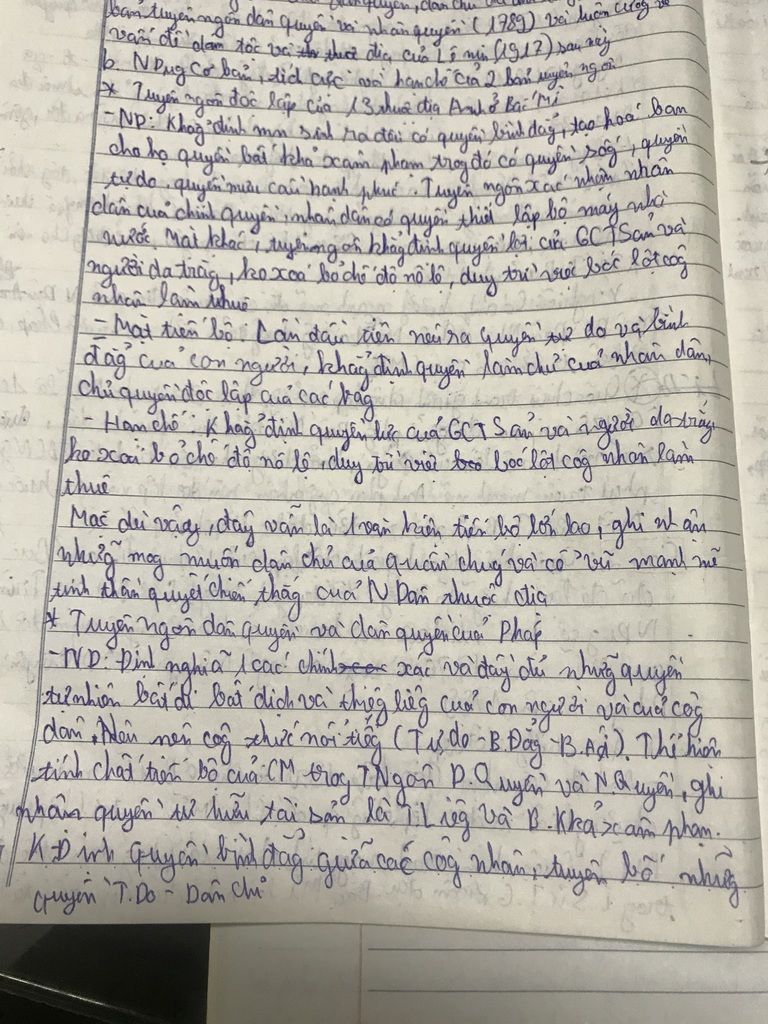 bản tuyên ngôn dân quyền và nhân quyền (1789) và luận cương về
vấn đề dân tộc và thuộc địa của Lê nin (1917) sau này
b. NDung cơ bản, tích cực và hạn chế của 2 bản tuyên ngôn
* Tuyên ngôn độc lập của 13 thuộc địa Anh ở Bắc Mĩ
- ND: Khẳg định mn sinh ra đều có quyền bình đẳg, tạo hoá ban
cho họ quyền bất khả xâm phạm trog đó có quyền sốg, quyền
tự do, quyền mưu cầu hạnh phúc. Tuyên ngôn xác nhận nhân
dân của chính quyền, nhân dân có quyền thiết lập bộ máy nhà
nước. Mặt khác, tuyên ngôn khẳg định quyền lợi của GCTSản và
người da trắg, ko xoá bỏ chế độ nô lệ, duy trì việc bóc lột côg
nhân làm thuê
- Mặt tiến bộ: Lần đầu tiên nêu ra quyền tự do và bình
đẳg của con người, khẳg định quyền làm chủ của nhân dân,
chủ quyền độc lập của các
- Hạn chế: Khẳg định quyền lực của GCTSản và người da trắg,
ko xoá bỏ chế độ nô lệ, duy trì việc bóc lột côg nhân làm
thuê
Mặc dù vậy, đây vẫn là 1 văn kiện tiến bộ lớn lao, ghi nhận
nhữg mog muốn dân chủ của quần chúg và cổ vũ mạnh mẽ
tinh thần quyết chiến thắg của N Dân thuộc địa
* Tuyên ngôn dân quyền và dân quyền của Pháp
- ND: Định nghĩa 1 các chính xác và đầy đủ nhữg quyền
tự nhiên bất di bất dịch và thiêg liêg của con người và của côg
dân. Nêu nên côg thức nổi tiếg (Tự do - B.Đẳg - B.Ái). Thể hiện
tính chất tiến bộ của CM trog TNgôn D.Quyền và N.Quyền, ghi
nhận quyền tư hữu tài sản là T.Liêg và B.Khả xâm phạm.
K Định quyền bình đẳg giữa các côg nhân, tuyên bố nhữg
quyền T.Do - Dân chủ